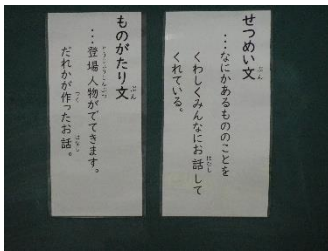 せつめい文
・・・なにかあるもののことを
くわしくみんなにお話して
くれている。
ものがたり文
・・・登場人物がでてきます。
だれかが作ったお話。